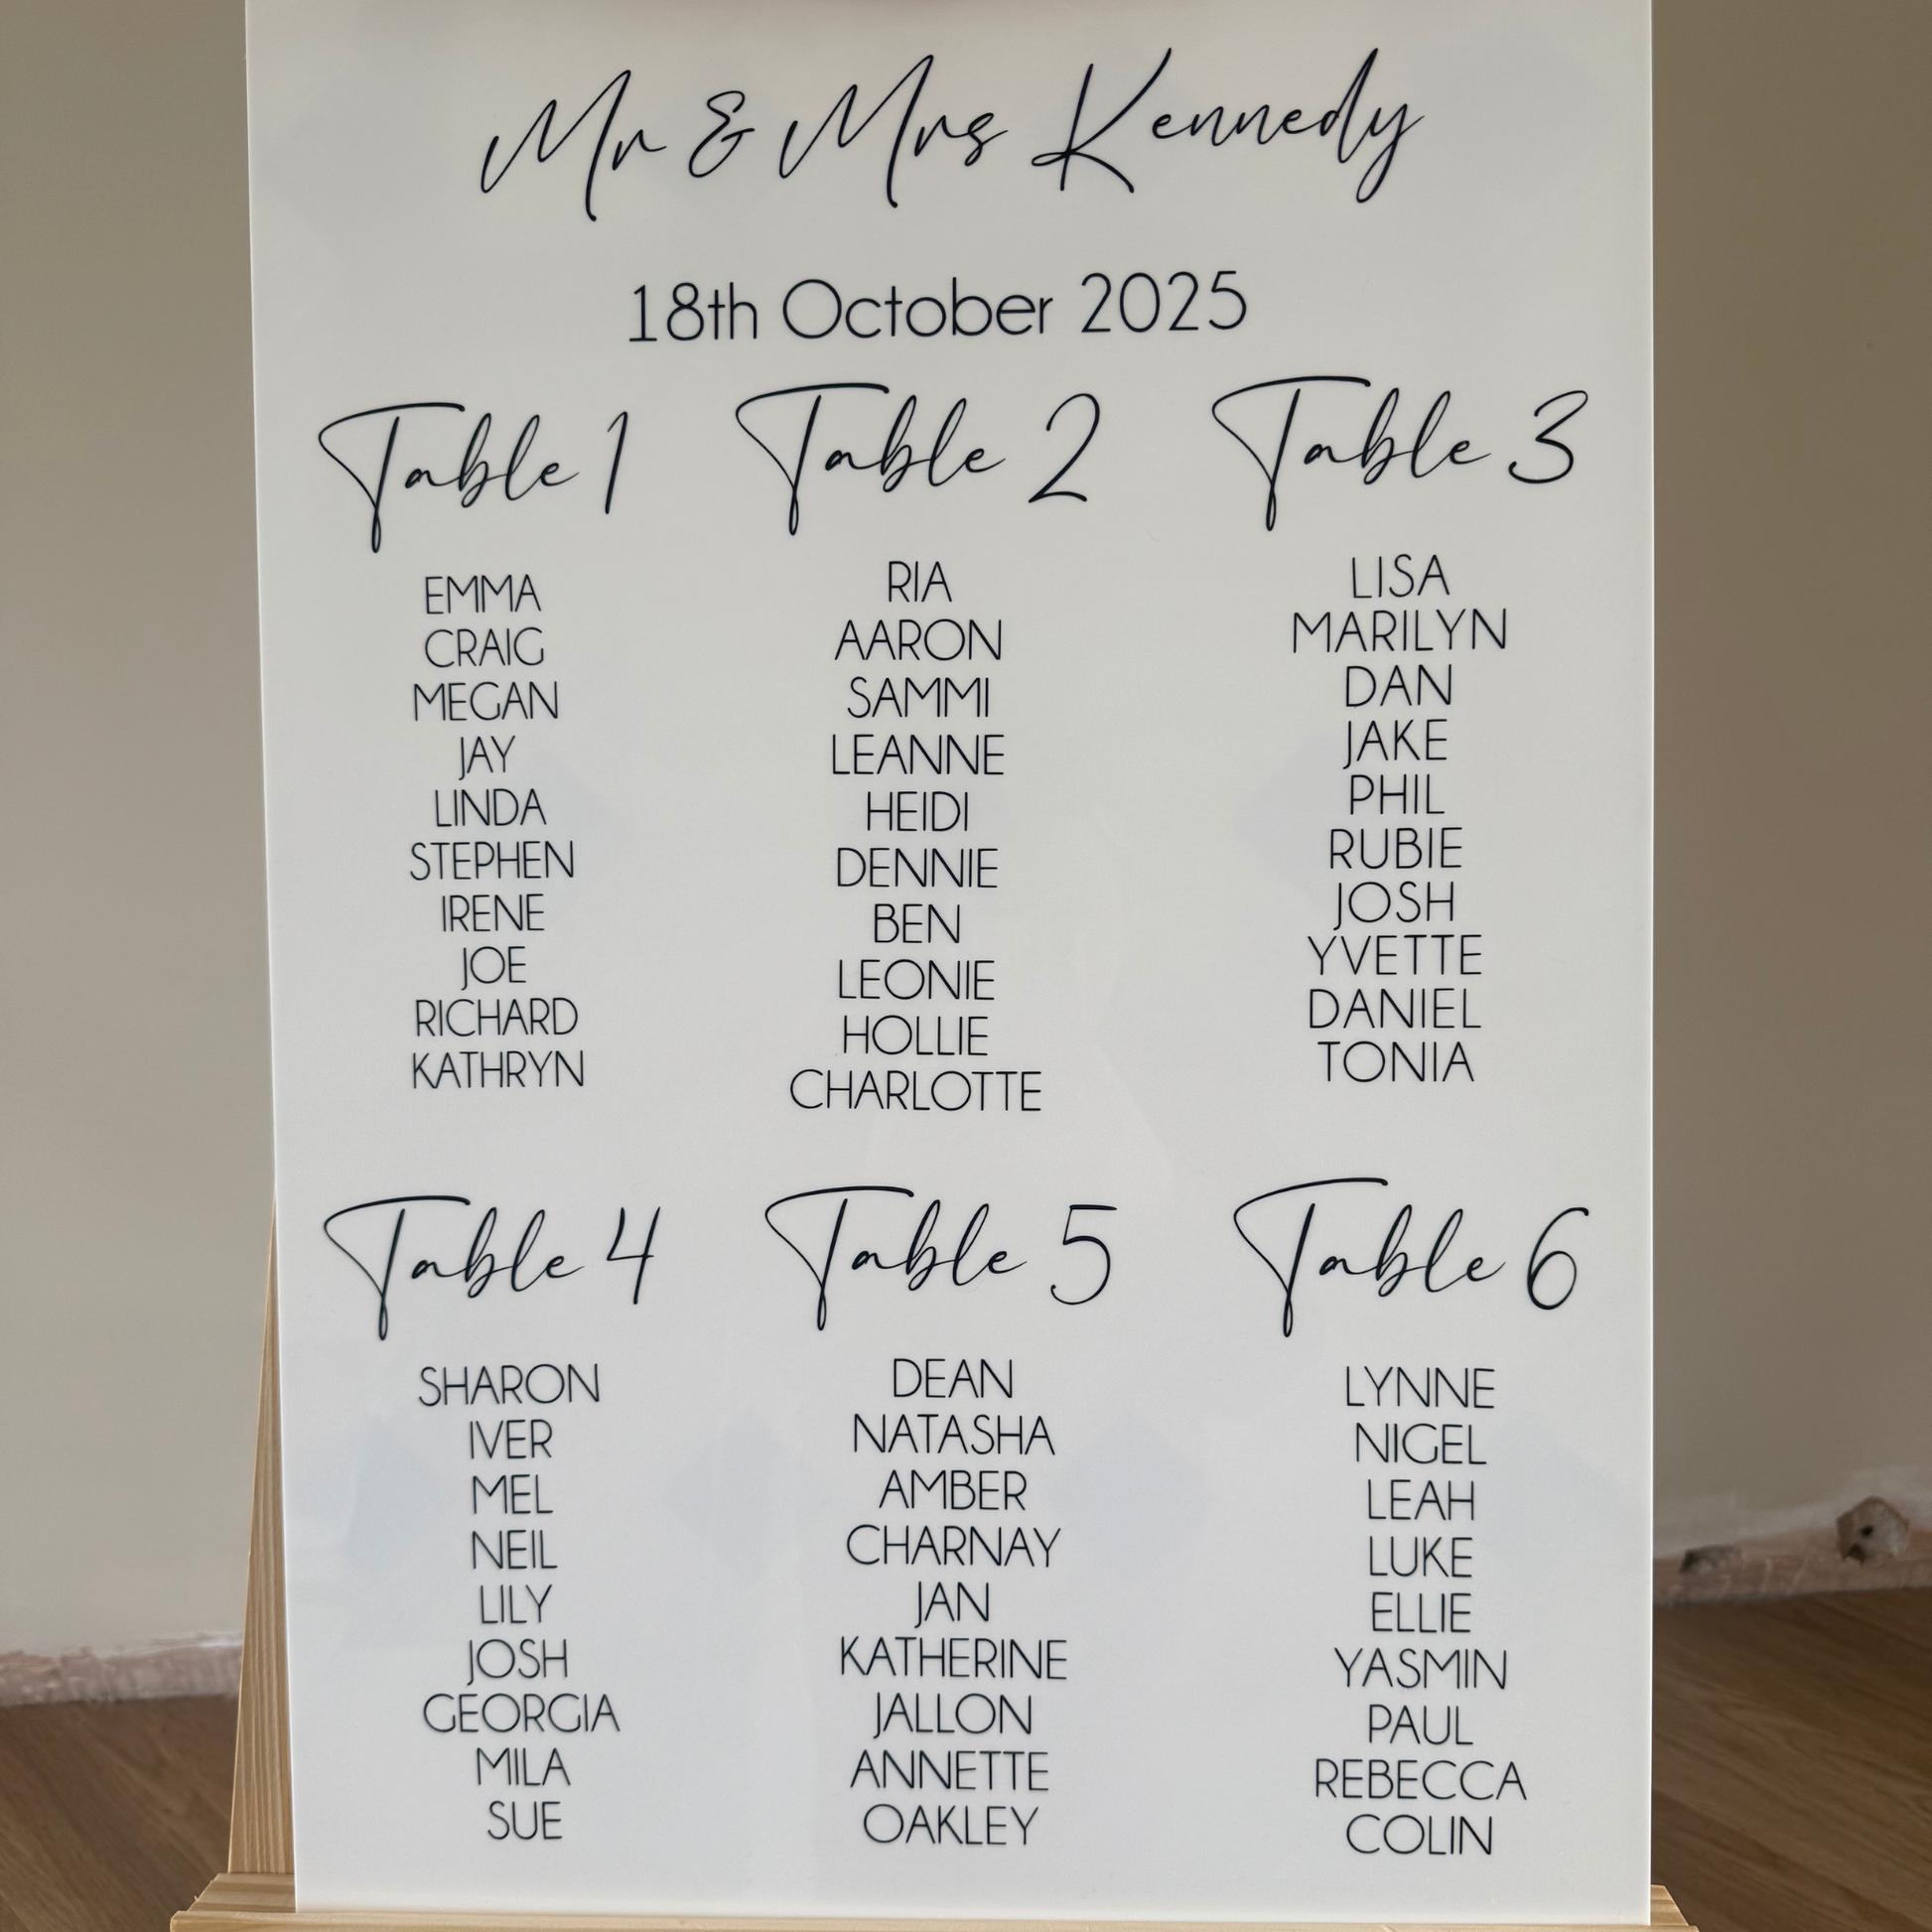 Mr & Mrs Kennedy
18th October 2025
Table 1
EMMA
CRAIG
MEGAN
JAY
LINDA
STEPHEN
IRENE
JOE
RICHARD
KATHRYN
Table 2
RIA
AARON
SAMMI
LEANNE
HEIDI
DENNIE
BEN
LEONIE
HOLLIE
CHARLOTTE
Table 3
LISA
MARILYN
DAN
JAKE
PHIL
RUBIE
JOSH
YVETTE
DANIEL
TONIA
Table 4
SHARON
IVER
MEL
NEIL
LILY
JOSH
GEORGIA
MILA
SUE
Table 5
DEAN
NATASHA
AMBER
CHARNAY
JAN
KATHERINE
JALLON
ANNETTE
OAKLEY
Table 6
LYNNE
NIGEL
LEAH
LUKE
ELLIE
YASMIN
PAUL
REBECCA
COLIN